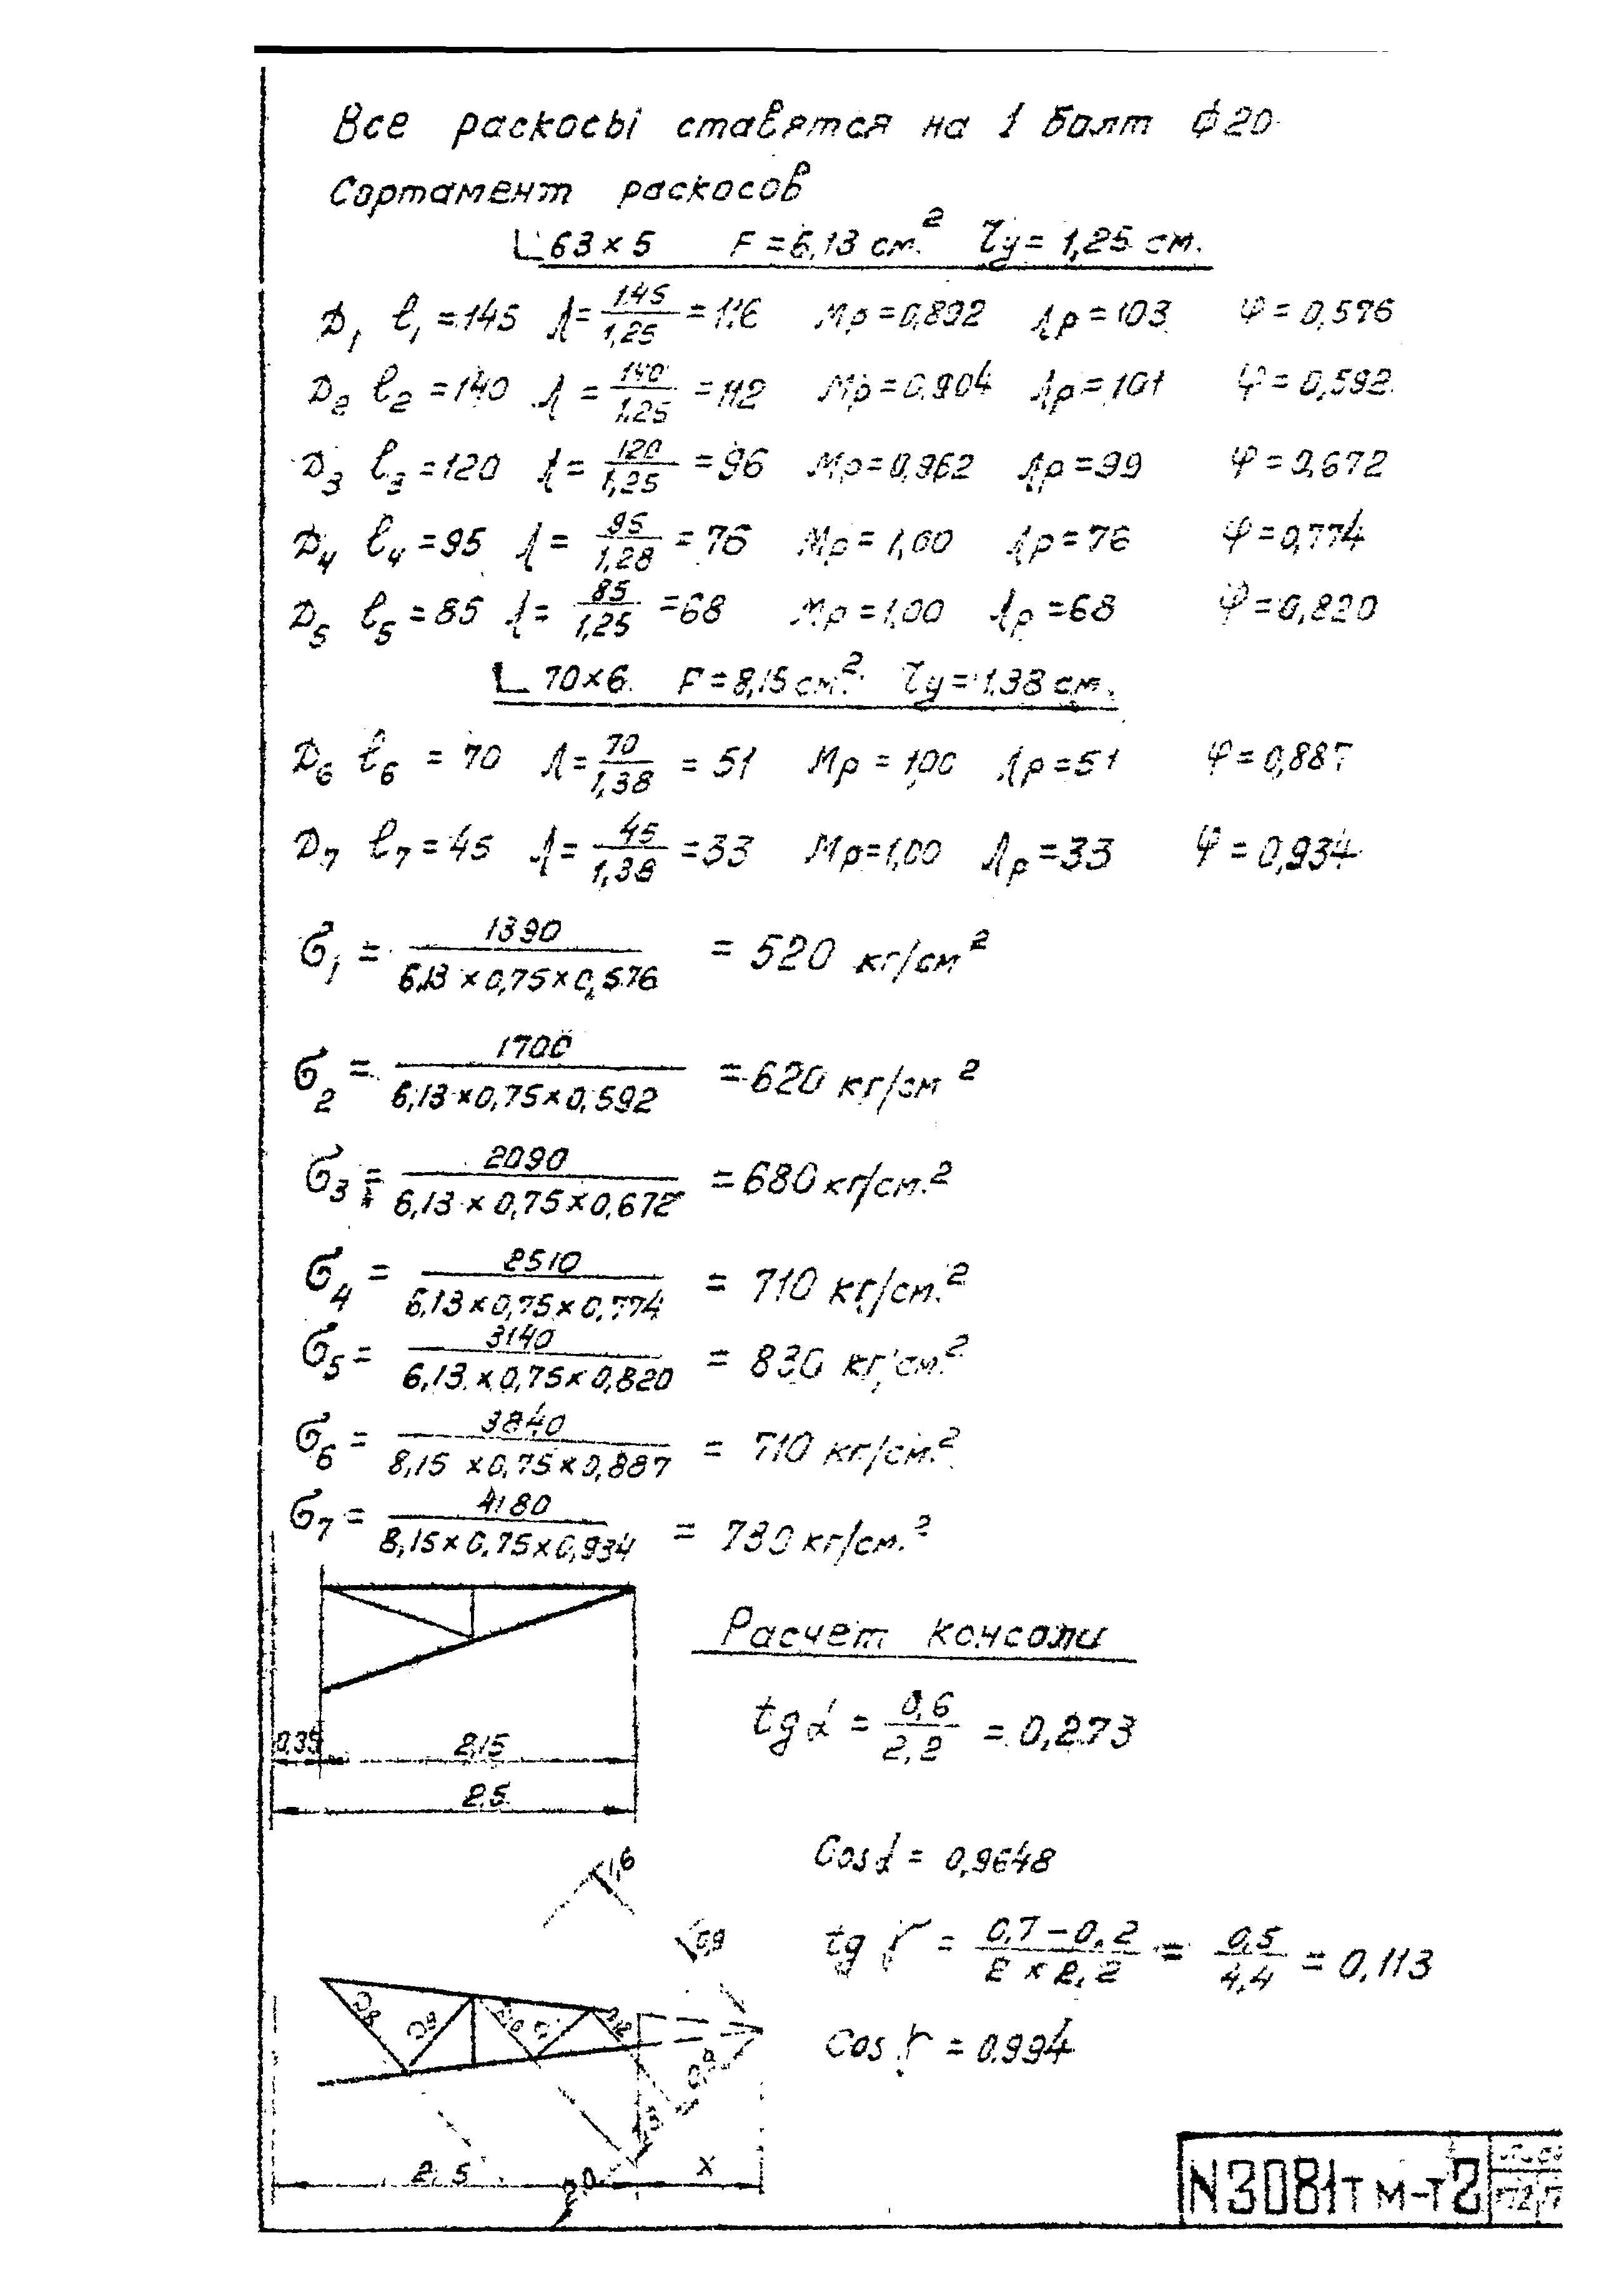 Все раскосы ставятся на 1 болт ф20
Сортамент раскосов
L 63×5 F=6,13 см.² ry=1,25 см.
D1 l1=145 λ=145/1,25=116 Mp=0,892 λp=103 φ=0,576
D2 l2=140 λ=140/1,25=112 Mp=0,904 λp=101 φ=0,592
D3 l3=120 λ=120/1,25=96 Mp=0,962 λp=99 φ=0,672
D4 l4=95 λ=95/1,28=76 Mp=1,00 λp=76 φ=0,774
D5 l5=85 λ=85/1,25=68 Mp=1,00 λp=68 φ=0,820
L 70×6. F=8,15 см.² ry=1,38 см.
D6 l6=70 λ=70/1,38=51 Mp=1,00 λp=51 φ=0,887
D7 l7=45 λ=45/1,38=33 Mp=1,00 λp=33 φ=0,934
σ1=1390/6,13×0,75×0,576=520 кг/см²
σ2=1700/6,13×0,75×0,592=620 кг/см²
σ3=2090/6,13×0,75×0,672=680 кг/см.²
σ4=2510/6,13×0,75×0,774=710 кг/см.²
σ5=3140/6,13×0,75×0,820=830 кг/см.²
σ6=3840/8,15×0,75×0,887=710 кг/см.²
σ7=4180/8,15×0,75×0,934=730 кг/см.²
Расчет консоли
tg α=0,6/2,2=0,273
0,35 2,15
2,5
Cos α=0,9648
1,6
0,9
tg γ=0,7-0,2/2×2,2=0,5/4,4=0,113
D8 D9
Cos γ=0.994
0,9
2,5 2,0 x
N3081тм-т2